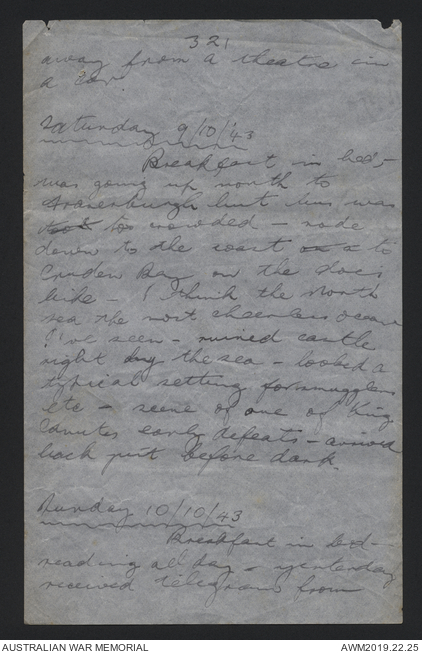 321
away from a theatre in
a car.
Saturday 9/10/'43
Breakfast in bed -
was going up north to
Fraserburgh but bus was
too crowded - rode
down to the coast on a to
Cruden Bay on the docs
bike - I think the North
sea the most cheerless ocean
I've seen - ruined castle
right by the sea - looked a
typical setting for smugglers
etc - scene of one of King
Canutes early defeats - arrived
back just before dark.
Sunday 10/10/43
Breakfast in bed -
reading all day - yesterday
received telegram from
AUSTRALIAN WAR MEMORIAL
AWM2019.22.25